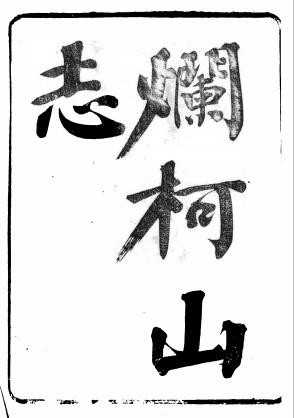 爛柯山
志